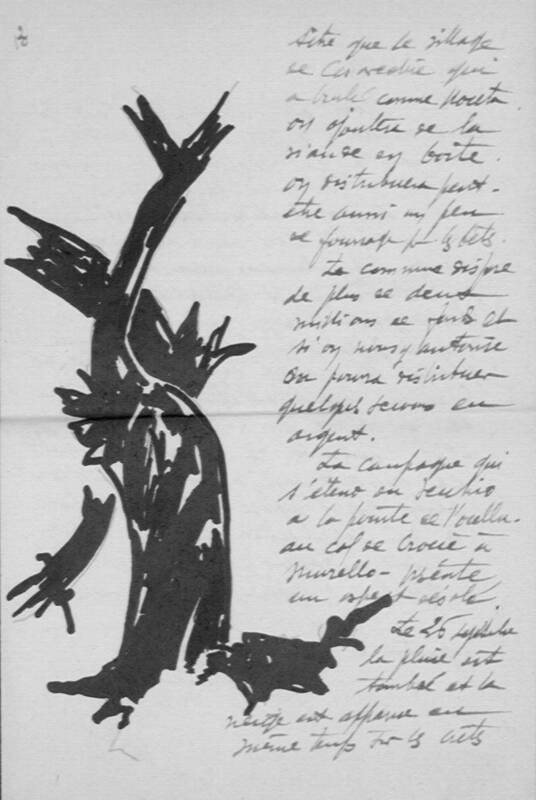 que le village
de qui
a brulé comme
on ajoutera de la
viande en boite.
on distribuera peut-
être aussi un peu
de fourrage
La commune dispose
de plus de deux
millions de et
si on nous y autorise
on pourra distribuer
quelques secours en
argent.
La campagne qui
s'étend du
a la pointe de
au col de Croce à
Murello -
un aspect désolé
Le 25
la pluie est
tombé et la
neige est apparue en
même temps sur les